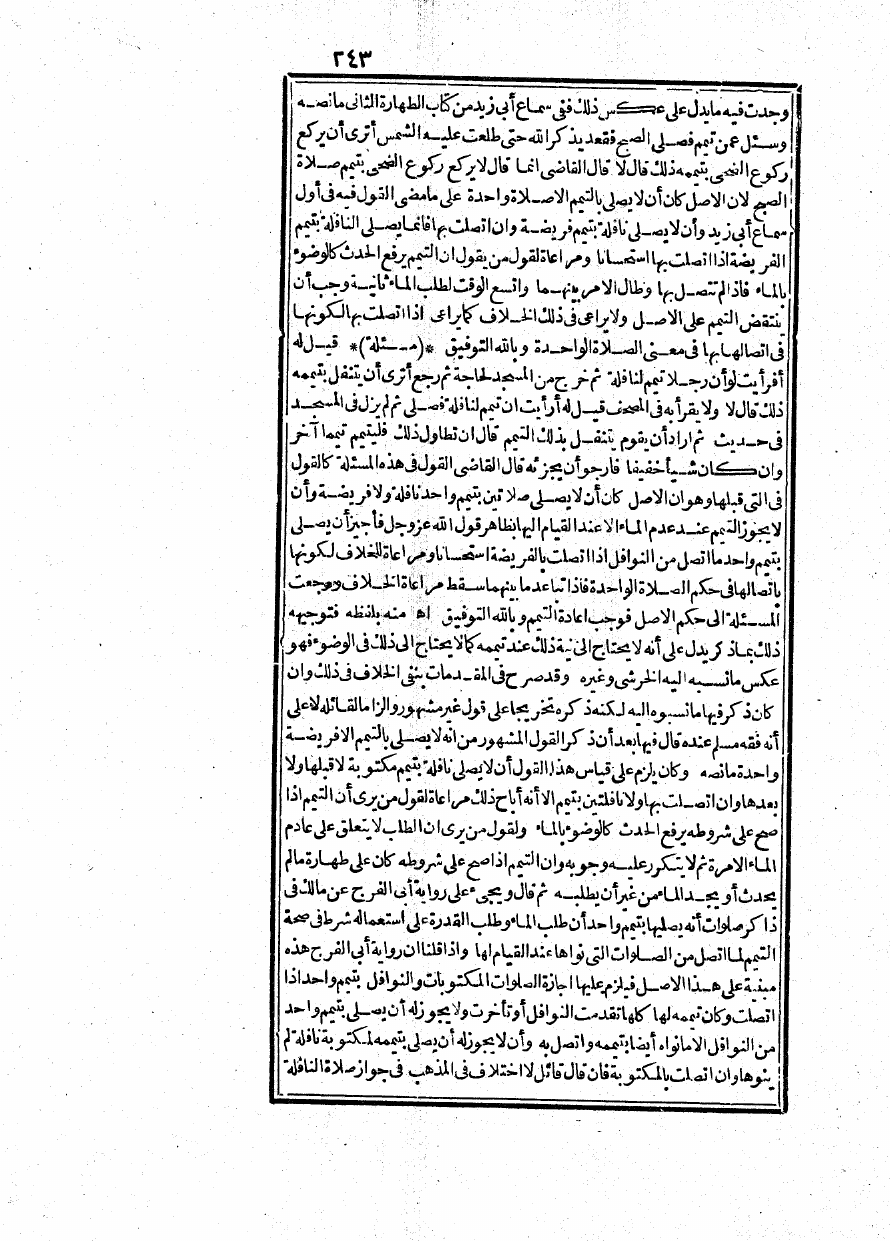 ٢٤٣
وجدت فيه ما يدل على عكس ذلك ففي سماع أبي زيد من كتاب الطهارة الثاني ما نصه
وسئل عمن تيمم فصلى الصبح فقعد يذكر الله حتى طلعت عليه الشمس أترى أن يركع
ركوع الضحى بتيممه ذلك قال لا قال القاضي انما قال لا يركع ركوع الضحى بتيمم صلاة
الصبح لان الاصل كان أن لا يصلى بالتيمم الا صلاة واحدة على ما مضى القول فيه في أول
سماع أبي زيد وأن لا يصلى نافلة بتيمم فريضة وان اتصلت بها فانما يصلى النافلة بتيمم
الفريضة اذا اتصلت بها استحسانا ومراعاة لقول من يقول ان التيمم يرفع الحدث كالوضوء
بالماء فاذا لم تتصل بها وطال الامر بينهما واتسع الوقت لطلب الماء ثانية وجب أن
ينتقض التيمم على الاصل ولا يراعى في ذلك الخلاف كما يراعى اذا اتصلت بها لكونها
في اتصالها بها في معنى الصلاة الواحدة وبالله التوفيق *(مسئلة)* قيل له
أفرأيت لو أن رجلا تيمم لنافلة ثم خرج من المسجد لحاجة ثم رجع أترى أن يتنفل بتيممه
ذلك قال لا ولا يقرأ به في المصحف قيل له أرأيت ان تيمم لنافلة فصلى ثم لم يزل في المسجد
في حديث ثم اراد أن يقوم يتنفل بذلك التيمم قال ان تطاول ذلك فليتيمم تيمما آخر
وان كان شيأ خفيفا فارجو أن يجزئه قال القاضي القول في هذه المسئلة كالقول
في التي قبلها وهو ان الاصل كان أن لا يصلى صلاتين بتيمم واحد نافلة ولا فريضة وأن
لا يجوز التيمم عند عدم الماء الا عند القيام اليها بظاهر قول الله عز وجل فأجيز أن يصلى
بتيمم واحد ما اتصل من النوافل اذا اتصلت بالفريضة استحسانا ومراعاة للخلاف لكونها
باتصالها في حكم الصلاة الواحدة فاذا تباعد ما بينهما سقط مراعاة الخلاف ورجعت
المسئلة الى حكم الاصل فوجب اعادة التيمم وبالله التوفيق اه منه بلفظه فتوجيهه
ذلك بما ذكر يدل على أنه لا يحتاج الى نية ذلك عند تيممه كما لا يحتاج الى ذلك في الوضوء فهو
عكس ما نسبه اليه الخرشي وغيره وقد صرح في المقدمات بنفي الخلاف في ذلك وان
كان ذكر فيها ما نسبوه اليه لكنه ذكره تخريجا على قول غير مشهور والزاما لقائله لا على
أنه فقه مسلم عنده قال فيها بعد أن ذكر القول المشهور من انه لا يصلى بالتيمم الا فريضة
واحدة ما نصه وكان يلزم على قياس هذا القول أن لا يصلى نافلة بتيمم مكتوبة لا قبلها ولا
بعدها وان اتصلت بها ولا نافلتين بتيمم الا أنه أباح ذلك مراعاة لقول من يرى أن التيمم اذا
صح على شروطه يرفع الحدث كالوضوء بالماء ولقول من يرى ان الطلب لا يتعلق على عادم
الماء الا مرة ثم لا يتكرر عليه وجوبه وان التيمم اذا صح على شروطه كان على طهارة مالم
يحدث أو يجد الماء من غير أن يطلبه ثم قال ويجيء على رواية أبي الفرج عن مالك في
ذاكر صلوات أنه يصليها بتيمم واحد أن طلب الماء وطلب القدرة على استعماله شرط في صحة
التيمم لما اتصل من الصلوات التي نواها عند القيام لها واذا قلنا ان رواية أبي الفرج هذه
مبنية على هذا الاصل فيلزم عليها اجازة الصلوات المكتوبات والنوافل بتيمم واحد اذا
اتصلت وكان تيممه لها كلها تقدمت النوافل أو تأخرت ولا يجوز له أن يصلى بتيمم واحد
من النوافل الا ما نواه أيضا بتيممه واتصل به وأن لا يجوز له أن يصلى بتيممه لمكتوبة نافلة لم
ينوها وان اتصلت بالمكتوبة فان قال قائل لا اختلاف في المذهب في جواز صلاة النافلة